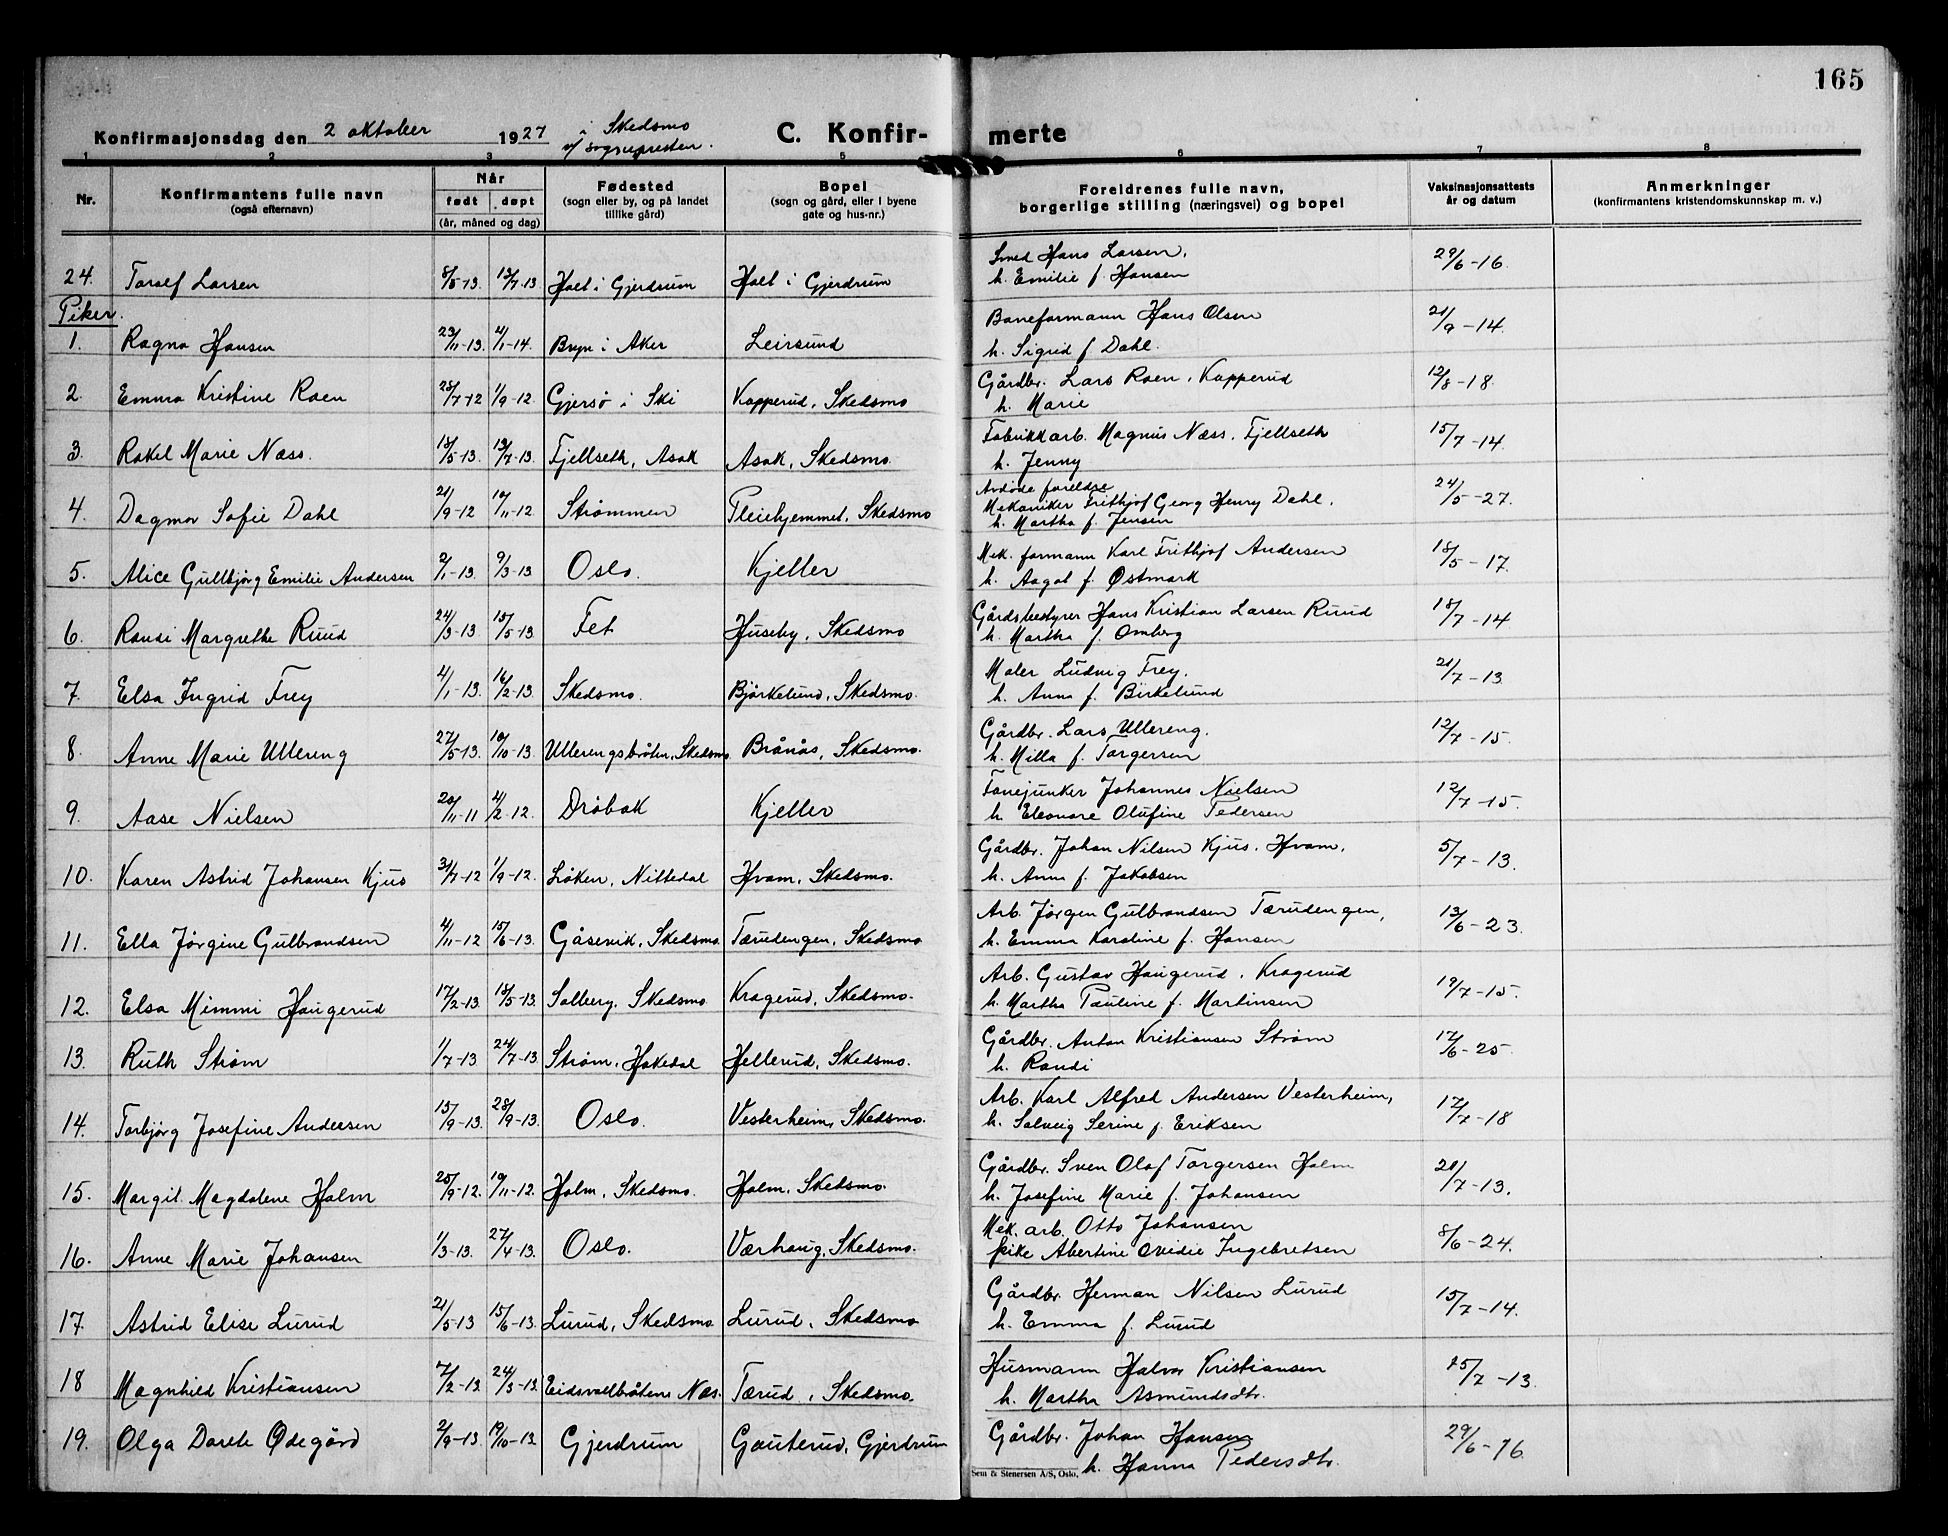 165
Konfirmasjonsdag den 2 oktober 1927 i Skedsmo C. Konfir- merte
v/ sognepresten.
1 2 3 5 6 7 8
Nr. Konfirmantens fulle navn (også efternavn) Når født døpt (år, måned og dag) Fødested (sogn eller by, og på landet tillike gård) Bopel (sogn og gård, eller i byene gate og hus-nr.) Foreldrenes fulle navn, borgerlige stilling (næringsvei) og bopel Vaksinasjonsattests år og datum Anmerkninger (konfirmantens kristendomskunnskap m. v.)
24. Toralf Larsen 8/5-13 13/7-13 Holt i Gjerdrum Holt i Gjerdrum Smed Hans Larsen, h. Emilie f. Hansen 29/6-16.
Piker.
1. Ragna Hansen 23/11-13. 4/1-14. Bryn i Aker Leirsund Baneformann Hans Olsen h. Sigrid f Dahl. 21/9-14.
2. Emma Kristine Roen 28/7-12 1/9-12. Gjersø i Ski Kopperud, Skedsmo Gårdbr. Lars Roen, Kopperud h. Marie 12/8-18.
3. Rakel Marie Næss. 18/5-13. 13/7-13. Fjellseth, Asak Asak, Skedsmo. Fabrikkarb. Magnus Næss, Fjellseth h. Jenny 15/7-14.
4. Dagmar Sofie Dahl 21/9-12 10/11-12. Strømmen Pleiehjemmet, Skedsmo Avdøde foreldre Mekaniker Frithjof Georg Henry Dahl, h. Martha f. Jensen 24/5-27.
5. Alice Gullbjørg Emilie Andersen 2/1-13. 9/3-13. Oslo. Kjeller Mek. formann Karl Frithjof Andersen h. Aagot f. Østmark 18/5-17.
6. Randi Margrethe Ruud 24/3-13. 15/5-13. Fet Huseby, Skedsmo Gårdsbestyrer Hans Kristian Larsen Ruud h. Martha f. Omberg 18/7-14
7. Elsa Ingrid Frey 4/1-13. 16/2-13. Skedsmo. Bjørkelund, Skedsmo. Maler Ludvig Frey, h. Anna f. Birkelund 21/7-13
8. Anne Marie Ullereng 27/5-13. 19/10-13. Ullerengsbråten, Skedsmo Brånås, Skedsmo. Gårdbr. Lars Ullereng, h. Milla f. Torgersen 12/7-15.
9. Aase Nielsen 20/11-11 4/2-12. Drøbak Kjeller Fanejunker Johannes Nielsen h. Eleonore Olufine Pedersen 12/7-15.
10. Karen Astrid Johansen Kjus 31/7-12 1/9-12. Løken, Nittedal Hvam, Skedsmo. Gårdbr. Johan Nilsen Kjus, Hvam, h. Anna f. Jakobsen 5/7-13.
11. Ella Jørgine Gulbrandsen 4/11-12 15/6-13. Gåsevik, Skedsmo. Tærudengen, Skedsmo Arb. Jørgen Gulbrandsen Tærudengen, h. Emma Karoline f. Hansen 13/6-23.
12. Elsa Mimmi Haugerud 17/2-13. 18/5-13. Solberg, Skedsmo Kragerud, Skedsmo. Arb. Gustav Haugerud, Kragerud h. Martha Pauline f. Martinsen 19/7-15.
13. Ruth Strøm 1/7-13. 24/7-13. Strøm, Hakedal Hellerud, Skedsmo. Gårdbr. Anton Kristiansen Strøm h. Randi 17/6-25
14. Torbjørg Josefine Andersen 15/9-13. 28/9-13. Oslo. Vesterheim, Skedsmo. Arb. Karl Alfred Andersen Vesterheim, h. Solveig Serine f. Eriksen 17/7-18
15. Margit Magdalene Holm 25/9-12. 10/11-12. Holm, Skedsmo. Holm, Skedsmo. Gårdbr. Sven Olaf Torgersen Holm h. Josefine Marie f. Johansen 21/7-13.
16. Anne Marie Johansen 1/3-13. 27/4-13. Oslo. Værhaug, Skedsmo. Mek. arb. Otto Johansen pike Abertine Ovidie Ingebretsen 8/6-24.
17. Astrid Elise Lurud 21/5-13 15/6-13. Lurud, Skedsmo Lurud, Skedsmo Gårdbr. Herman Nilsen Lurud h. Emma f. Lurud 15/7-14.
18 Magnhild Kristiansen 7/2-13 24/3-13. Eidsvollbråtene Næs. Tærud, Skedsmo. Husmann Halvor Kristiansen h. Martha Asmundsdtr. 25/7-13.
19. Olga Dorete Ødegård 2/9-13. 19/10-13. Gjerdrum Gauterud, Gjerdrum Gårdbr. Johan Hansen h. Hanna Pedersdtr. 29/6-16.
Sem & Stenersen A/S, Oslo.